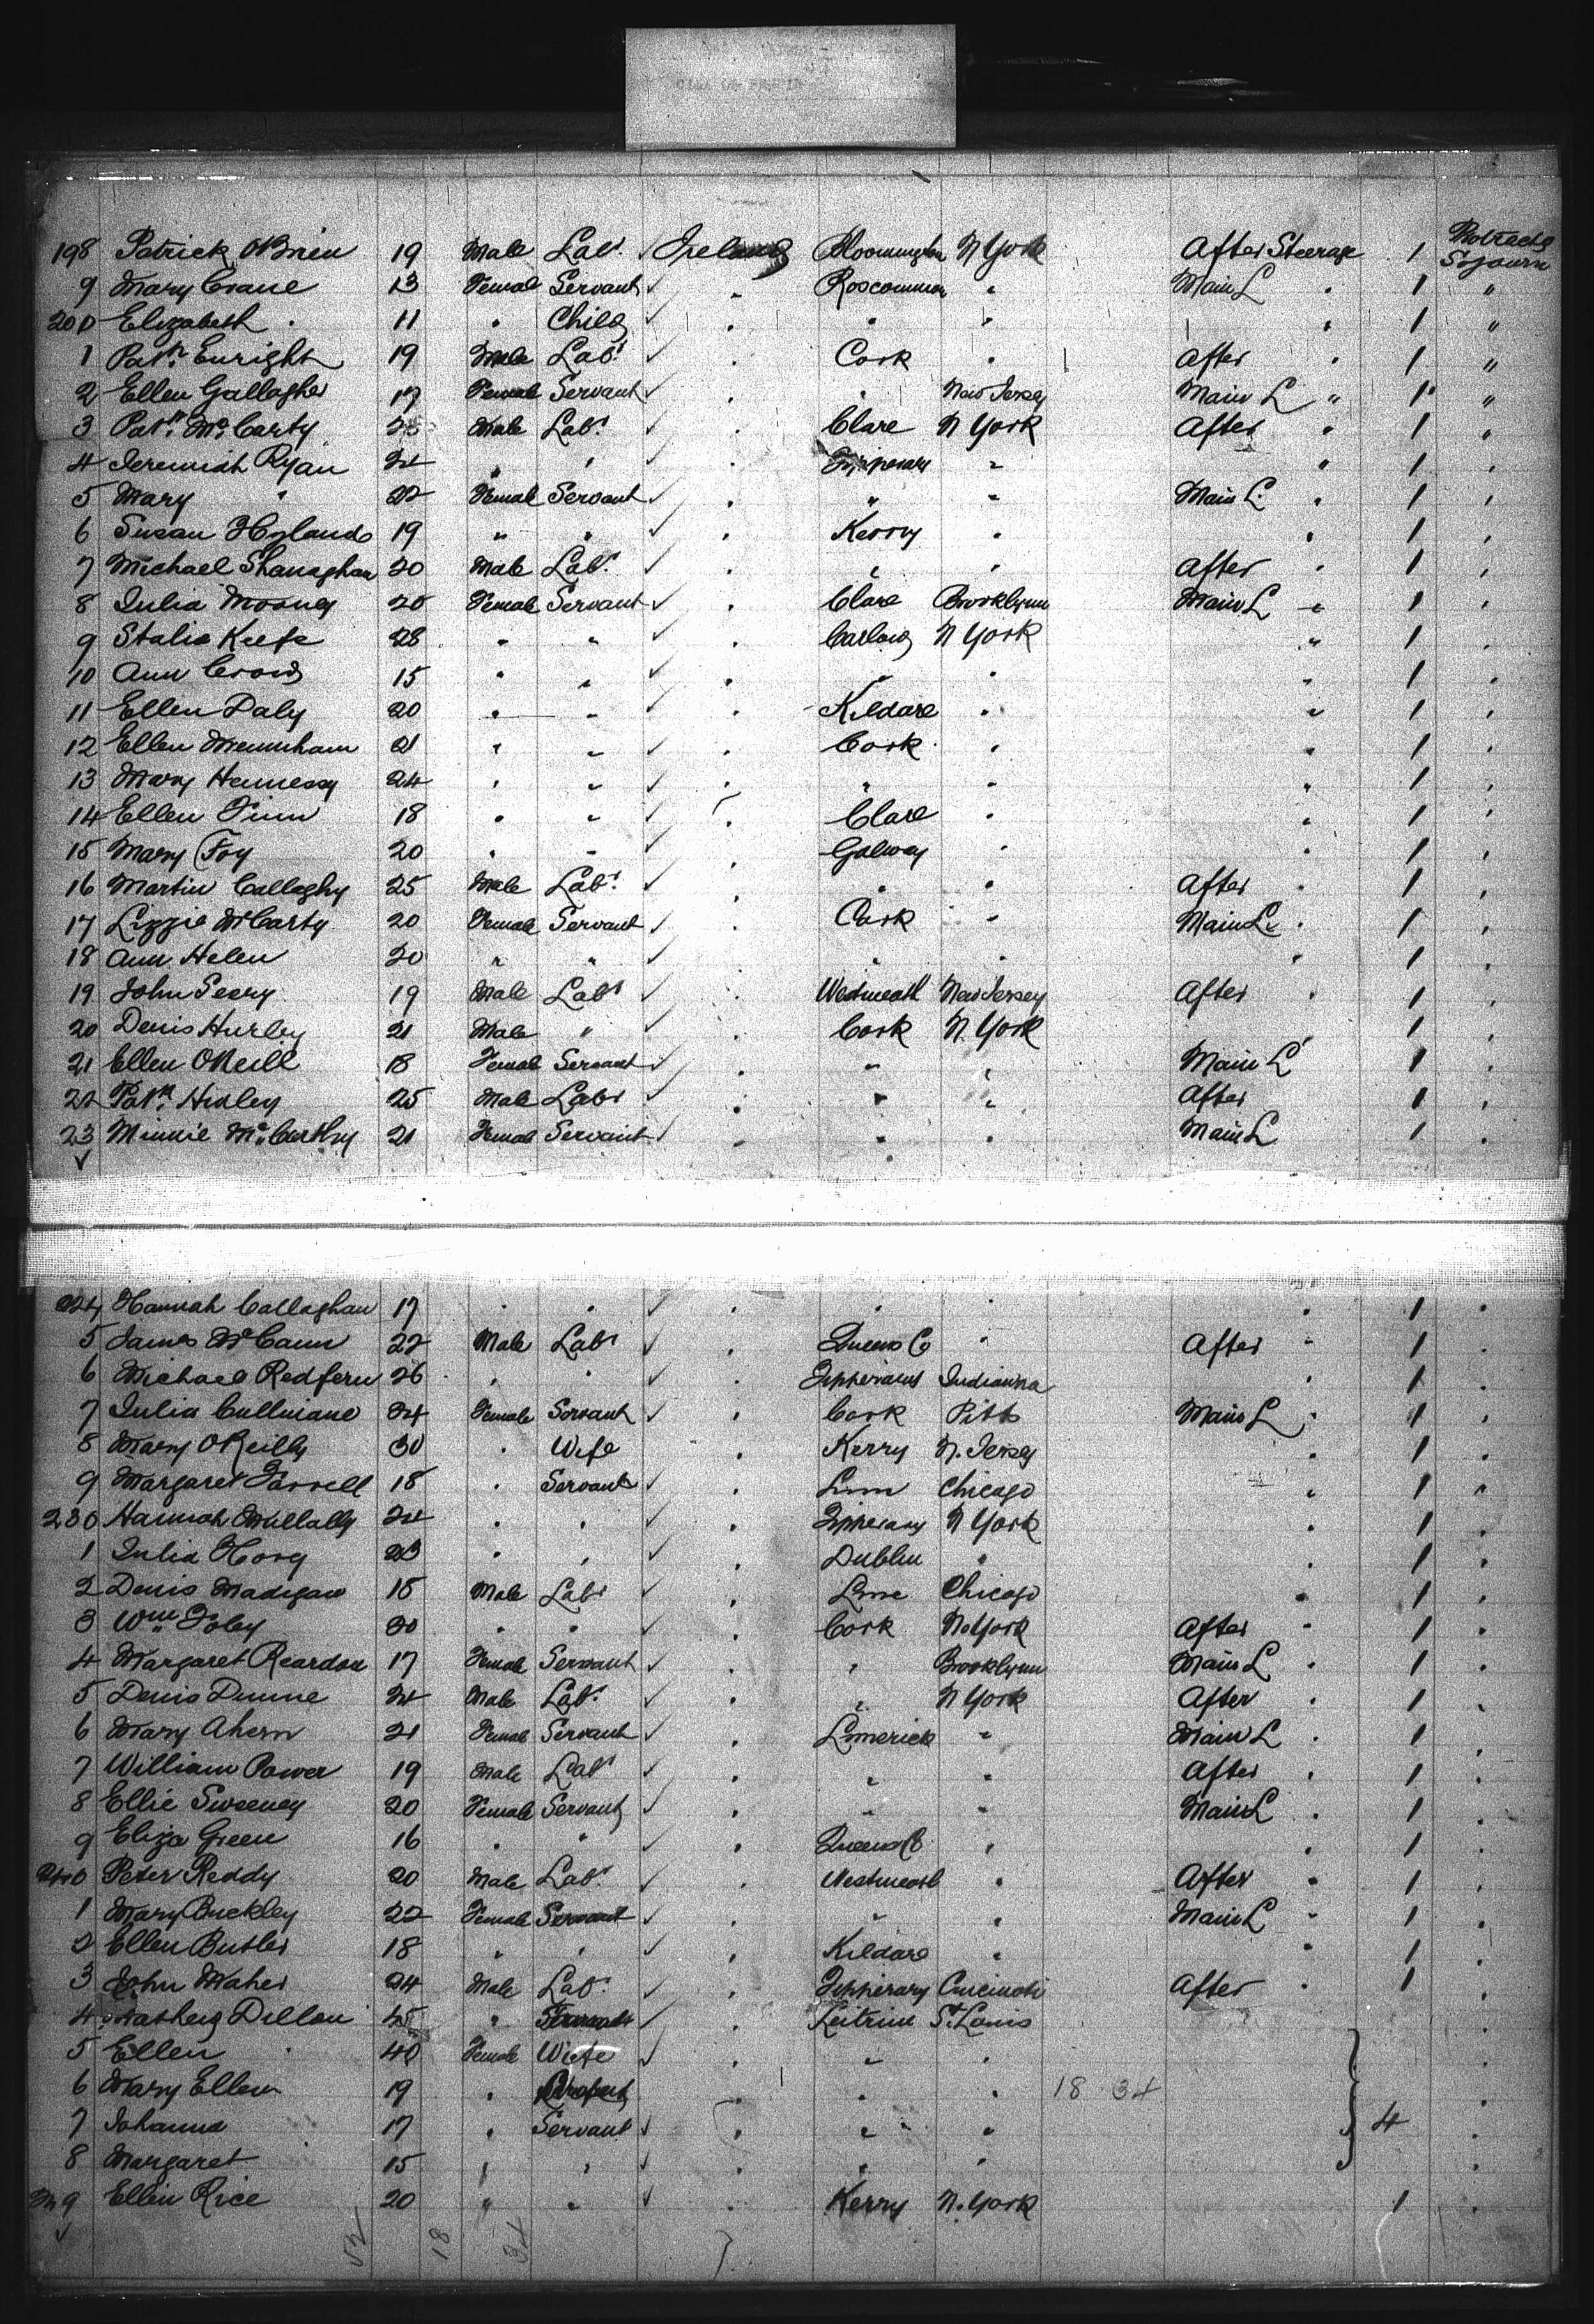 198 Patrick OBrien 19 Male Labr Ireland Bloomington N York After Steerage 1 Protracted Sojourn
9 Mary Crane 13 Female Servant ✓ " Roscommon " Main L " 1 "
200 Elizabeth " 11 " Child ✓ " " " " 1 "
1 Patk Enright 19 Male Labr ✓ " Cork " After " 1 "
2 Ellen Gallagher 17 Female Servant ✓ " " New Jersey Main L " 1 "
3 Patk McCarty Male Labr ✓ " Clare N York After " 1 "
4 Jeremiah Ryan 24 " " ✓ " Tipperary " " 1 "
5 Mary " 22 Female Servant ✓ " " " Main L " 1 "
6 Susan Hyland 19 " " ✓ " Kerry " " 1 "
7 Michael Shanaghan 20 Male Labr ✓ " " " After " 1 "
8 Julia Mooney 20 Female Servant ✓ " Clare Brooklynn Main L " 1 "
9 Statia Keefe 28 " " ✓ " Carlow N York " 1 "
10 Ann Crowd 15 " " ✓ " " " " 1 "
11 Ellen Daly 20 " " ✓ " Kildare " " 1 "
12 Ellen 21 " " ✓ " Cork " " 1 "
13 Mary Hennessy 24 " " ✓ " " " " 1 "
14 Ellen Finn 18 " " ✓ " Clare " " 1 "
15 Mary Foy 20 " " ✓ " Galway " " 1 "
16 Martin Callaghy 25 Male Labr ✓ " " " After " 1 "
17 Lizzie McCarty 20 Female Servant ✓ " Cork " Main L " 1 "
18 Ann Helen 20 " " ✓ " " " " 1 "
19 John Seery 19 Male Labr ✓ " Westmeath New Jersey After " 1 "
20 Denis Hurley 21 Male " ✓ " Cork N. York 1 "
21 Ellen ONeill 18 Female Servant ✓ " " " Main L 1 "
22 Patk Hurley 25 Male Labr ✓ " " " After 1 "
23 Minnie McCarthy 21 Female Servant ✓ " " " Main L 1 "
✓
224 Hannah Callaghan 17 " " ✓ " " " " 1 "
5 James McCann 22 Male Labr ✓ " Queens Co " After " 1 "
6 Michael Redfern 26 " " ✓ " Tipperary Indianna " 1 "
7 Julia Cullinane 24 Female Servant ✓ " Cork Pitts Main L " 1 "
8 Mary OReilly 30 " Wife " Kerry N. Jersey " 1 "
9 Margaret Farrell 18 " Servant ✓ " Lim Chicago " 1 "
230 Hannah Mullally 24 " " ✓ " Tipperary N York " 1 "
1 Julia 23 " " ✓ " Dublin " " 1 "
2 Denis Madigan 18 Male Labr ✓ " Lime Chicago " 1 "
3 Wm Foley 30 " " ✓ " Cork N. York After " 1 "
4 Margaret Reardon 17 Female Servant ✓ " " Brooklynn Main L " 1 "
5 Denis Dunne 24 Male Labr ✓ " " N York After " 1 "
6 Mary Ahern 21 Female Servant ✓ " Limerick " Main L " 1 "
7 William Power 19 Male Labr ✓ " " " After " 1 "
8 Ellie Sweeney 20 Female Servant ✓ " " " Main L " 1 "
9 Eliza Green 16 " " ✓ " Queens Co " " 1 "
240 Peter Reddy 20 Male Labr ✓ " Westmeath " After " 1 "
1 Mary Buckley 22 Female Servant ✓ " " " Main L " 1 "
2 Ellen Butler 18 " " ✓ " Kildare " " 1 "
3 John Maher 24 Male Labr ✓ " Tipperary Cincinati After " 1 "
4 Dillon 45 " ✓ " Leitrim St. Louis "
5 Ellen " 40 Female Wife ✓ " " " "
6 Mary Ellen 19 " " " " 18 34 "
7 Johanna 17 " Servant ✓ " " " 4 "
8 Margaret 15 " " ✓ " " " "
249 Ellen Rice 20 " " ✓ " Kerry N. York 1 "
✓ 52 18 34